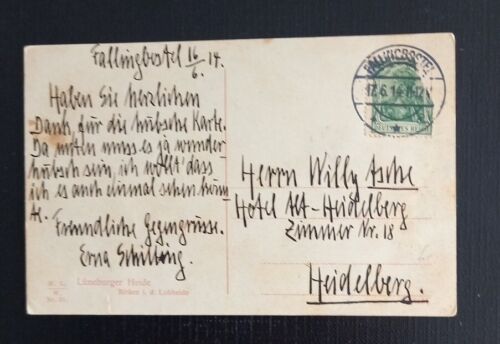 Fallingbostel 16/6. 14.
Haben Sie herzlichen
Dank, für die hübsche Karte.
Da muss es ja wunder
hübsch sein, ich wollt' dass
ich es auch einmal sehen könn
te.
Freundliche Gegengrüsse.
Erna
Lüneburger Heide
Birken i. d.
FALLINGBOSTEL
17.6.14.
DEUTSCHES REICH
Herrn Willy Asche
Hotel Alt-Heidelberg
Zimmer Nr. 18
Heidelberg.